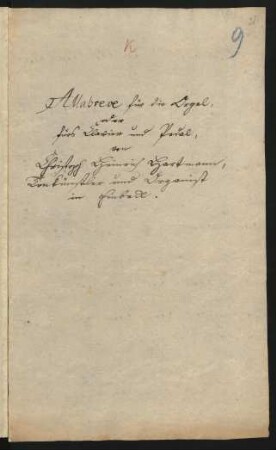 K
9
I Allabreve für die Orgel,
oder
fürs Clavier und Pedal,
von
Christoph Heinrich Hartmann,
Tonkünstler und Organist
in Einbeck.